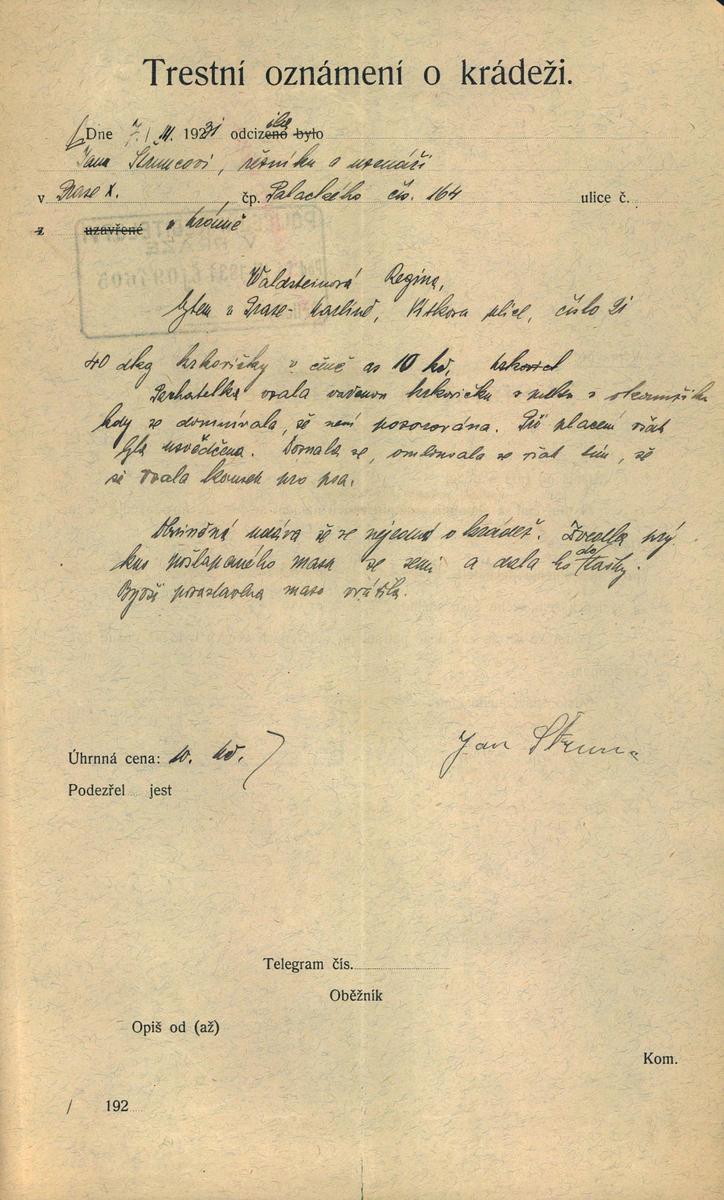 Trestní oznámení o krádeži.
Dne 7./III. 1931 odcizila odcizeno bylo
Janu Štrumcovi, řezníku a uzenáři
v Praze X. , čp. Palackého čís. 164 ulice č.
z uzavřené v krámě
Waldsteinová Regina,
bytem v Praze- Karlíně, Vítkova ulice, číslo 21
40 dkg krkovičky v ceně as 10 kč,
Pachatelka vzala vařenou krkovičku s pultu v okamžiku
kdy se domnívala, že není pozorována. Při placení však
byla usvědčena. Doznala se, omlouvala se však tím, že
si vzala kousek pro psa.
Obviněná udává že se nejedná o krádež. Zvedla prý
kus pošlapaného masa se země a dala ho do tašky.
Byvši pozastavena maso vrátila.
Úhrnná cena: 10. kč.
Jan
Podezřel jest
Telegram čís.
Oběžník
Opiš od (až)
Kom.
/ 192